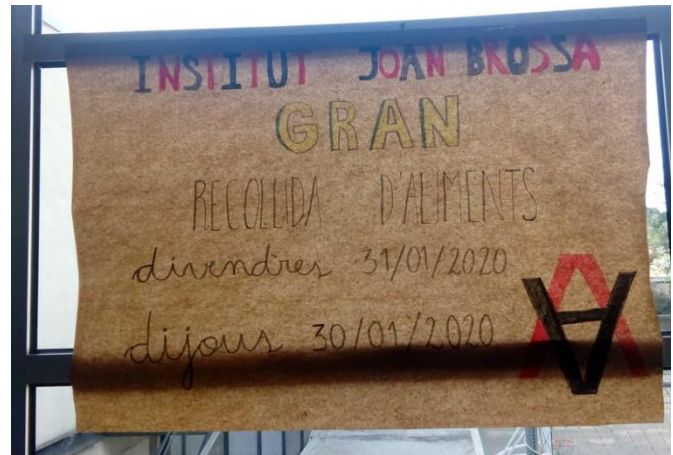 INSTITUT JOAN BROSSA
GRAN
RECOLLIDA D'ALIMENTS
divendres 31/01/2020
dijous 30/01/2020